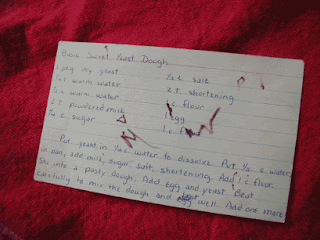 Basic Sweet Yeast Dough
1 pkg dry yeast
warm water
warm water
2 T. powdered milk
c. sugar
c. salt
2 T. shortening
1 c. flour
1 egg
1 c. flour
Put yeast in 1/4 c. water to dissolve. Put 1/2 c. water
in pan, add milk, sugar, salt, shortening. Add 1 c. flour.
Stir into a pasty dough. Add egg and yeast. Beat
carefully to mix the dough and well. Add one more